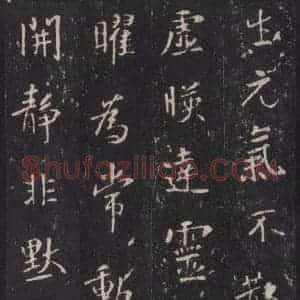 出元氣不
虛暎達靈
曜為常動
開静非默
Shufaziliao.com